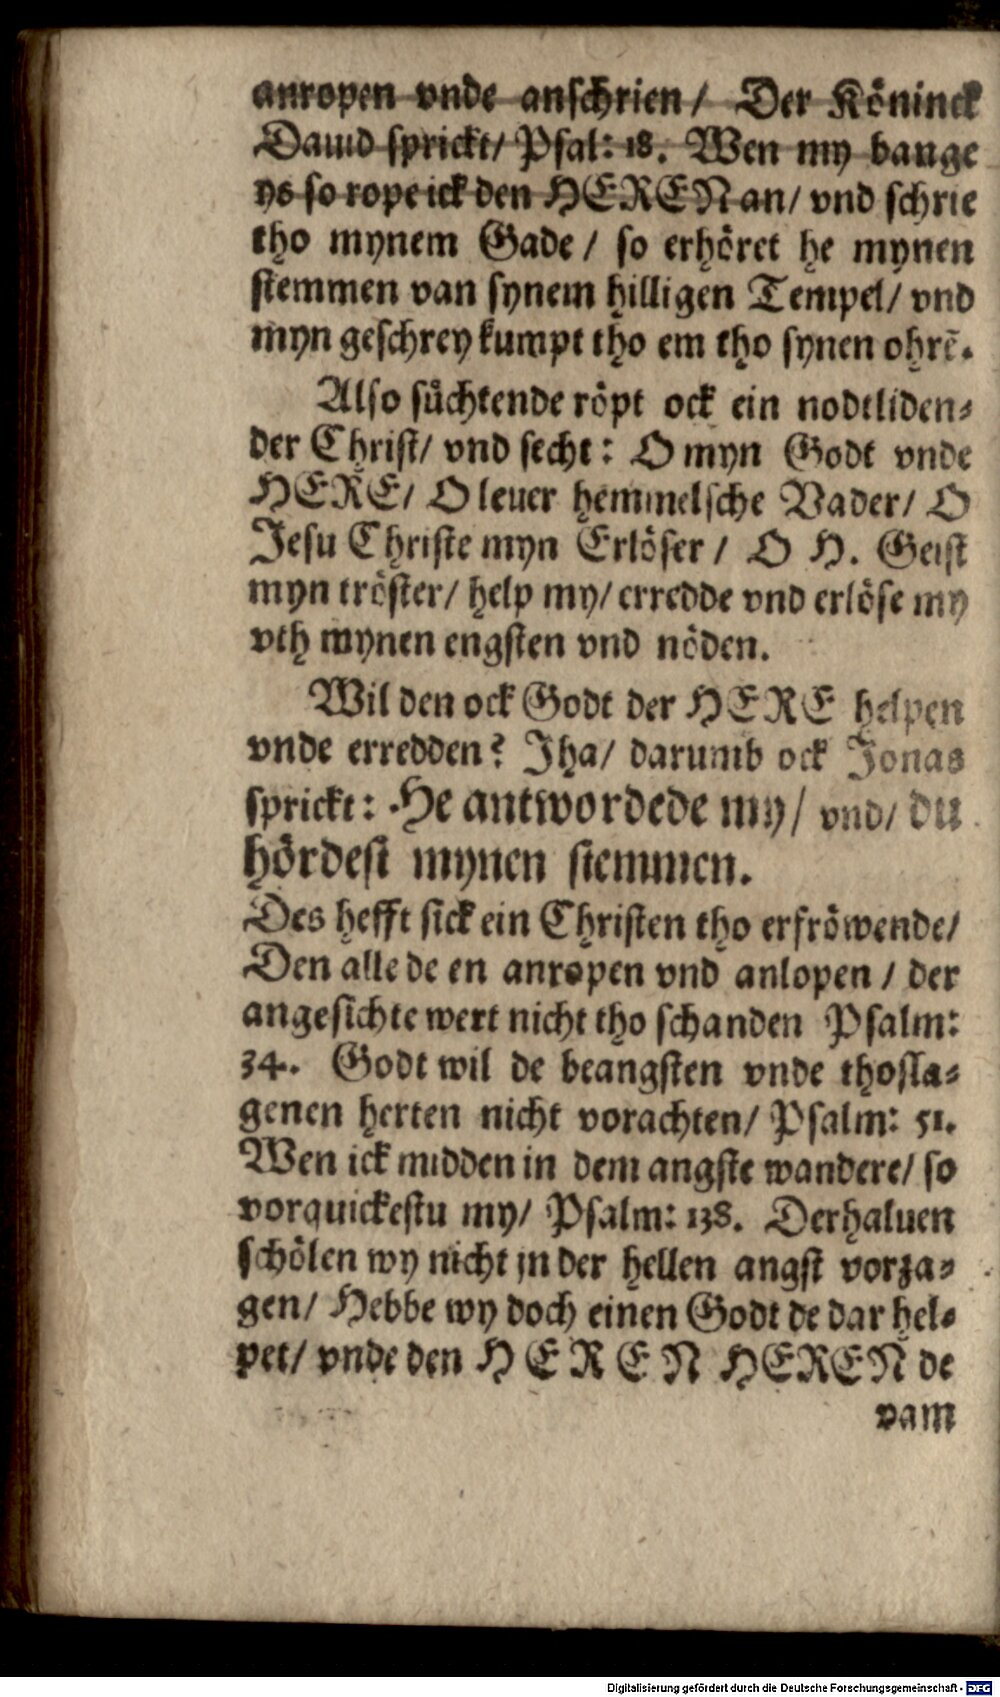 anropen vnde anschrien/ Der Köninck
Dauid sprickt/ Psal: 18. Wen my bange
ys so rope ick den HEREN an/ vnd schrie
tho mynem Gade/ so erhöret he mynen
stemmen van synem hilligen Tempel/ vnd
myn geschrey kumpt tho em tho synen ohrē.
Also süchtende röpt ock ein nodtliden⸗
der Christ/ vnd secht: O myn Godt vnde
HERE/ O leuer hemmelsche Vader/ O
Jesu Christe myn Erlöser/ O H. Geist
myn tröster/ help my/ erredde vnd erlöse my
vth mynen engsten vnd nöden.
Wil den ock Godt der HERE helpen
vnde erredden? Jha/ darumb ock Jonas
sprickt: He antwordede my/ vnd/ du
hördest mynen stemmen.
Des hefft sick ein Christen tho erfröwende/
Den alle de en anropen vnd anlopen/ der
angesichte wert nicht tho schanden Psalm:
34. Godt wil de beangsten vnde thosla⸗
genen herten nicht vorachten/ Psalm: 51.
Wen ick midden in dem angste wandere/ so
vorquickestu my/ Psalm: 138. Derhaluen
schölen wy nicht jn der hellen angst vorza⸗
gen/ Hebbe wy doch einen Godt de dar hel⸗
pet/ vnde den HEREN HEREN de
vam
Digitalisierung gefördert durch die Deutsche Forschungsgemeinschaft - DFG